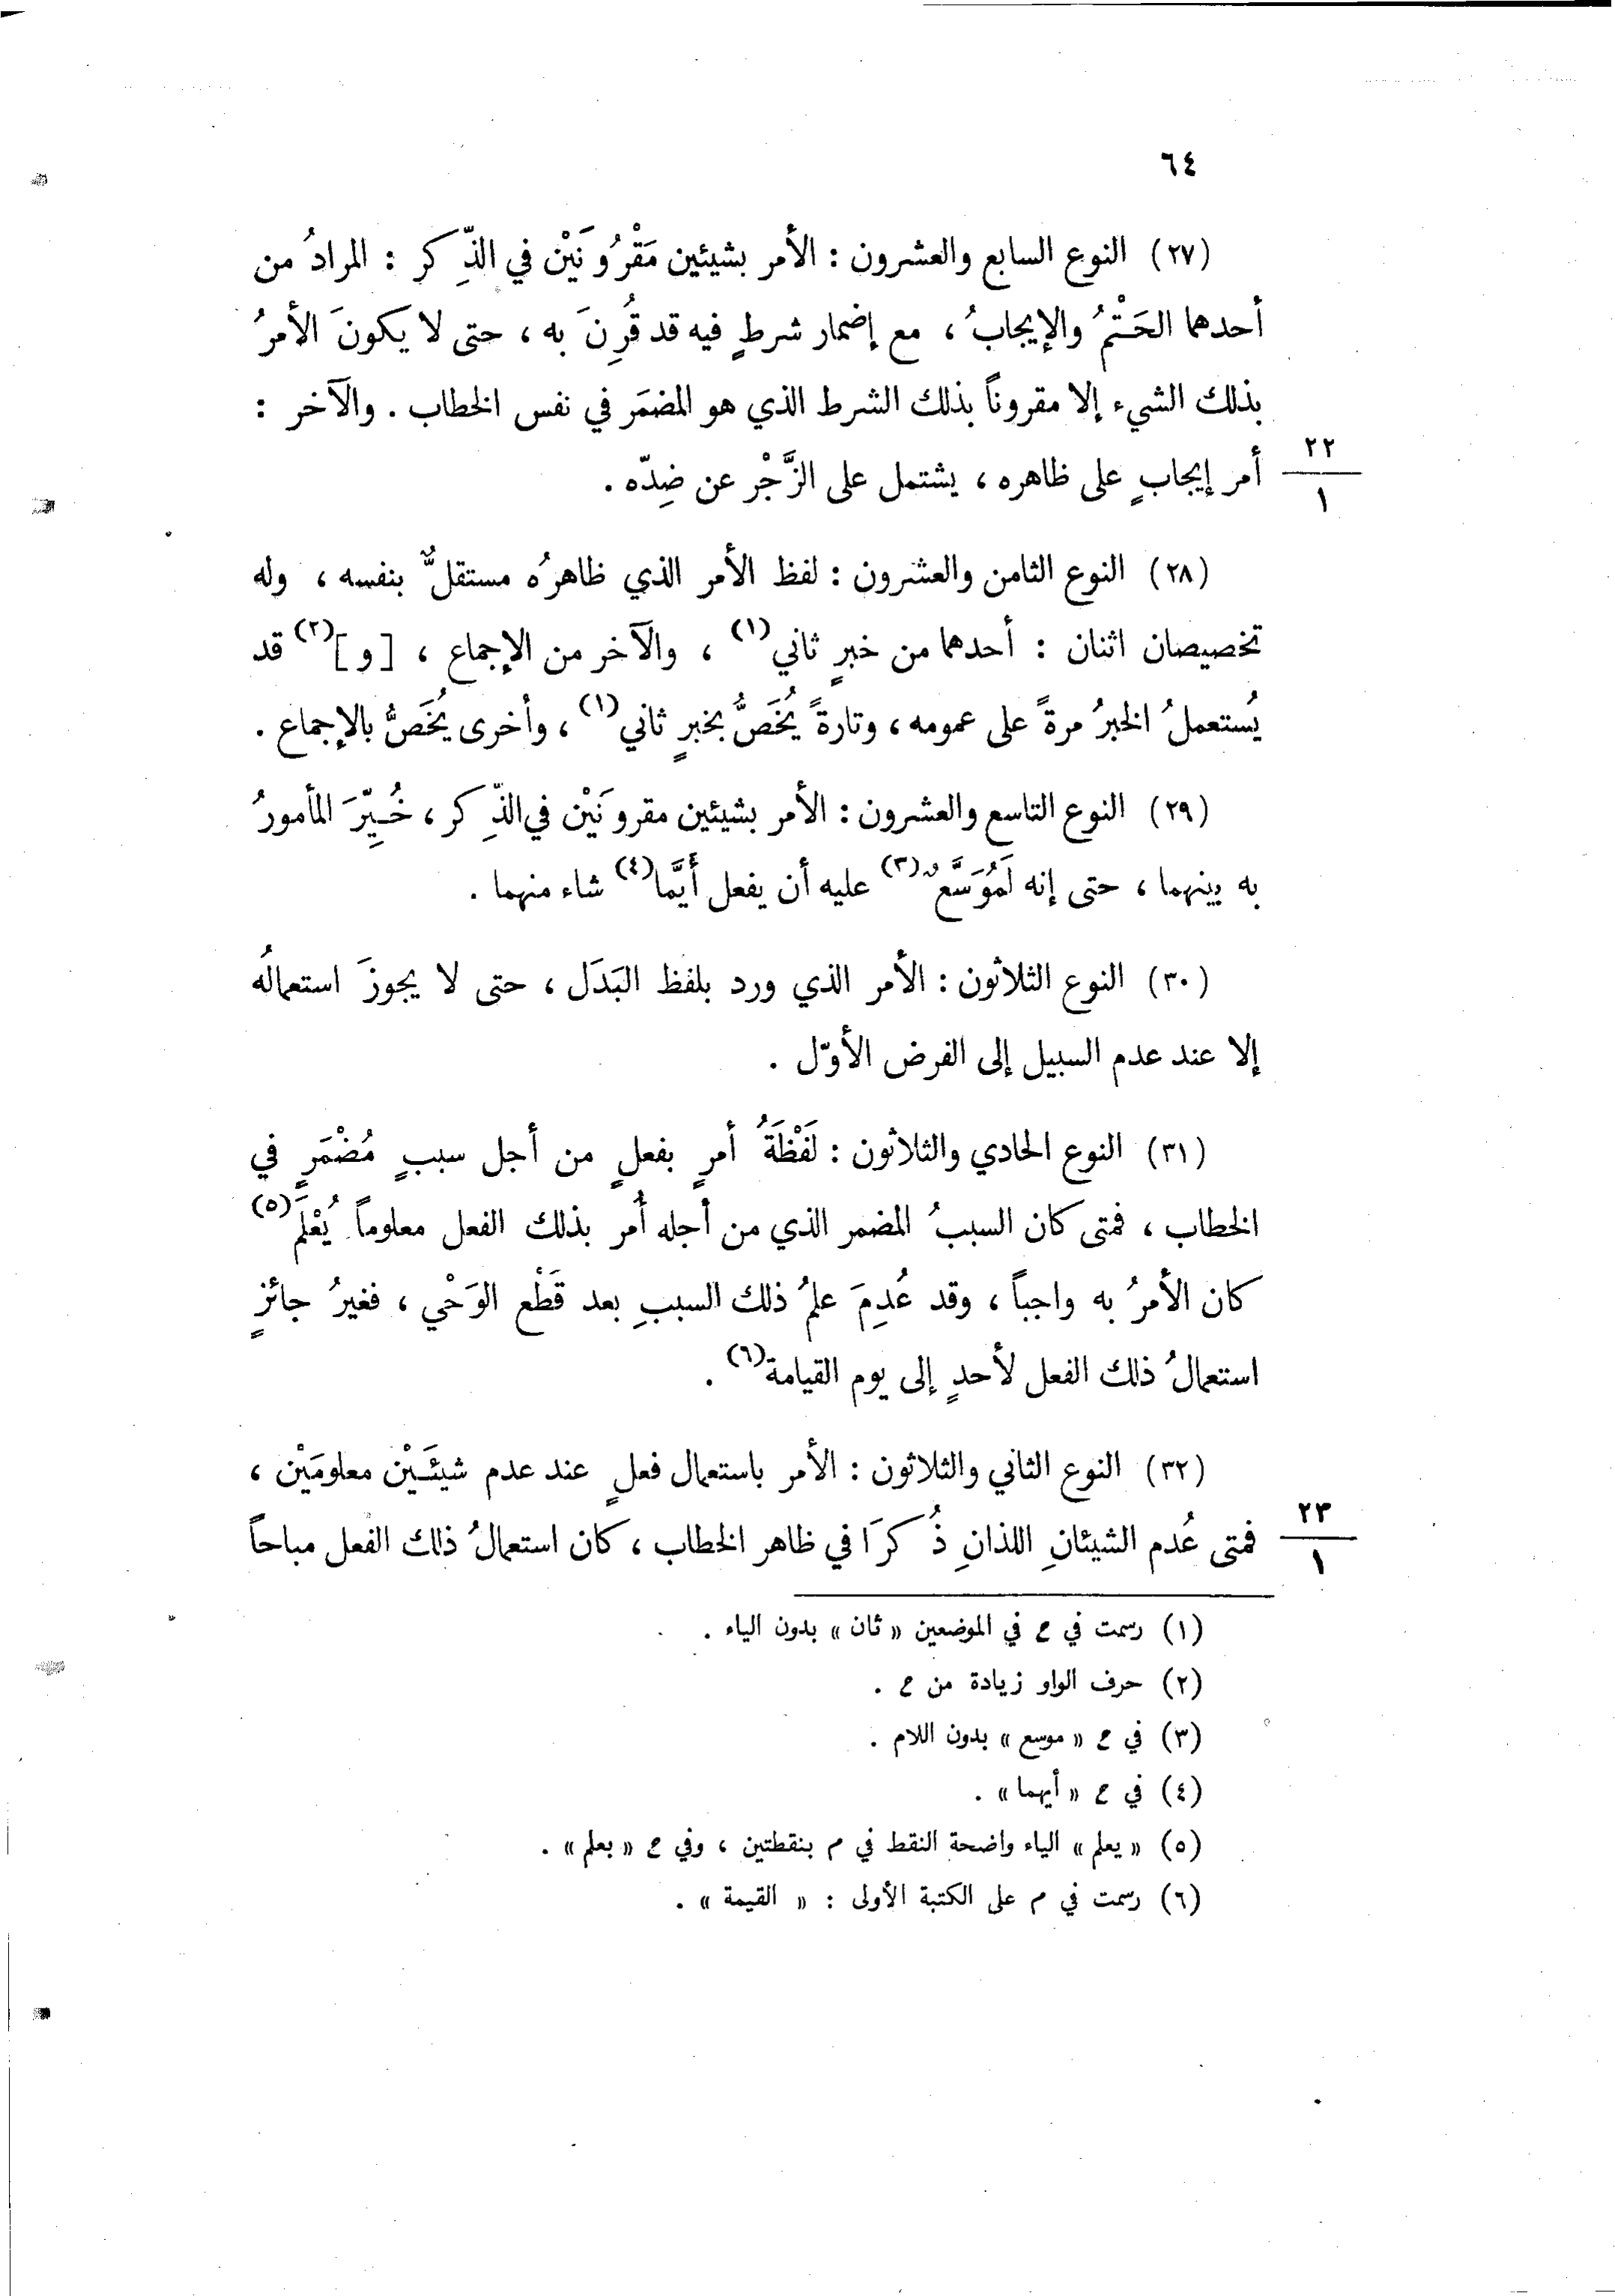 ٦٤
(٢٧) النوع السابع والعشرون : الأمر بشيئين مَقْرُونَيْن في الذِّكر : المرادُ من
أحدهما الحَتْمُ والإيجابُ ، مع إضمار شرطٍ فيه قد قُرِنَ به ، حتى لا يكونَ الأمرُ
بذلك الشيء إلا مقروناً بذلك الشرط الذي هو المضمَر في نفس الخطاب . والآخر :
أمر إيجابٍ على ظاهره ، يشتمل على الزَّجْر عن ضِدّه .
٢٢
١
(٢٨) النوع الثامن والعشرون : لفظ الأمر الذي ظاهرُه مستقلٌّ بنفسه ، وله
تخصيصان اثنان : أحدهما من خبرٍ ثاني(١) ، والآخر من الإجماع ، [ و ](٢) قد
يُستعملُ الخبرُ مرةً على عمومه ، وتارةً يُخَصُّ بخبرٍ ثاني(١) ، وأخرى يُخَصُّ بالإجماع .
(٢٩) النوع التاسع والعشرون : الأمر بشيئين مقرونَيْن في الذِّكر ، خُيِّرَ المأمورُ
به بينهما ، حتى إنه لَمُوَسَّعٌ(٣) عليه أن يفعل أَيَّما(٤) شاء منهما .
(٣٠) النوع الثلاثون : الأمر الذي ورد بلفظ البَدَل ، حتى لا يجوزَ استعمالُه
إلا عند عدم السبيل إلى الفرض الأوّل .
(٣١) النوع الحادي والثلاثون : لَفْظَةُ أمرٍ بفعلٍ من أجل سببٍ مُضْمَرٍ في
الخطاب ، فمتى كان السببُ المضمر الذي من أجله أُمر بذلك الفعل معلوماً يُعْلَم(٥)
كان الأمرُ به واجباً ، وقد عُدِمَ علمُ ذلك السببِ بعد قَطْع الوَحْي ، فغيرُ جائزٍ
استعمالُ ذلك الفعل لأحدٍ إلى يوم القيامة(٦) .
(٣٢) النوع الثاني والثلاثون : الأمر باستعمال فعلٍ عند عدم شيئَيْن معلومَيْن ،
فمتى عُدم الشيئانِ اللذانِ ذُكرَا في ظاهر الخطاب ، كان استعمالُ ذلك الفعل مباحاً
٢٣
١
(١) رسمت في ح في الموضعين « ثان » بدون الياء .
(٢) حرف الواو زيادة من ح .
(٣) في ح « موسع » بدون اللام .
(٤) في ح « أيهما » .
(٥) « يعلم » الياء واضحة النقط في م بنقطتين ، وفي ح « بعلم » .
(٦) رسمت في م على الكتبة الأولى : « القيمة » .